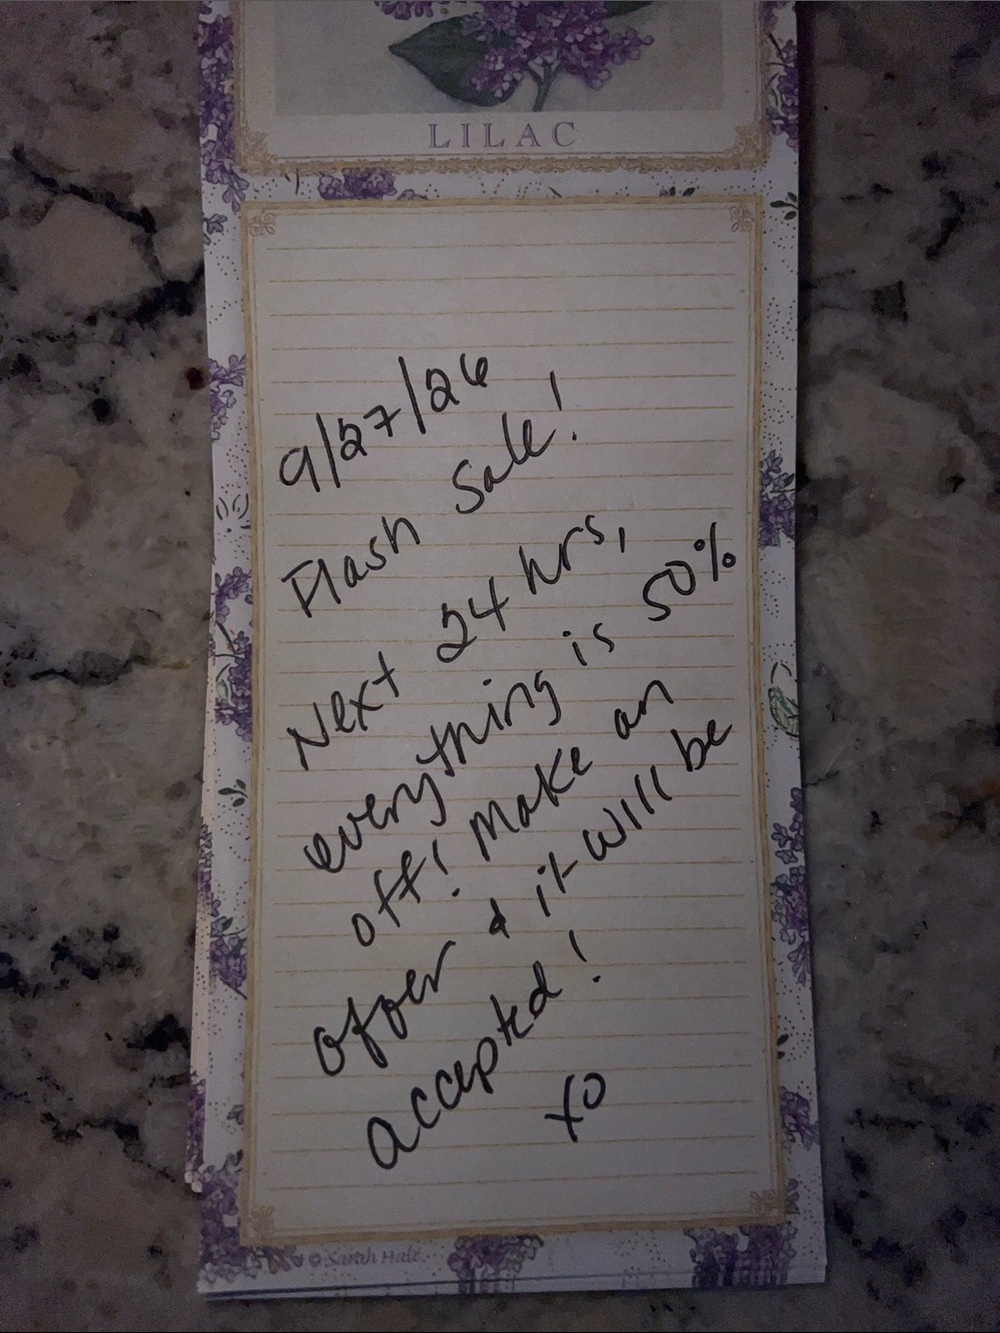 LILAC
9/27/26
Flash Sale!
Next 24 hrs,
everything is 50%
off! Make an
offer & it will be
accepted!
xo
© Sarah Hale